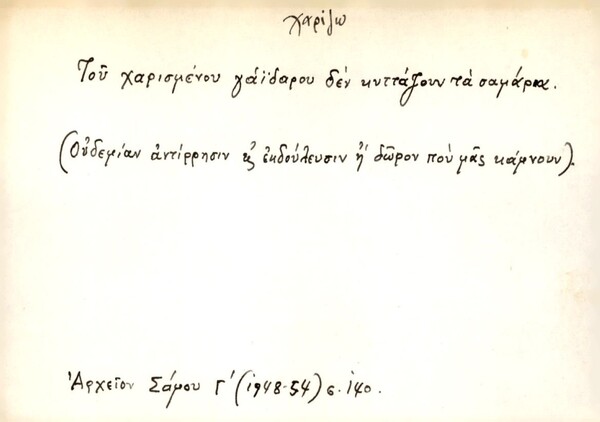 χαρίζω
Τοῦ χαρισμένου γάϊδαρου δέν κυττάζουν τὰ σαμάρια.
(Οὐδεμίαν ἀντίρρησιν εἰς ἐκδούλευσιν ἤ δῶρον ποὺ μᾶς κάμνουν).
Ἀρχεῖον Σάμου Γ' (1948-54) σ. 140.